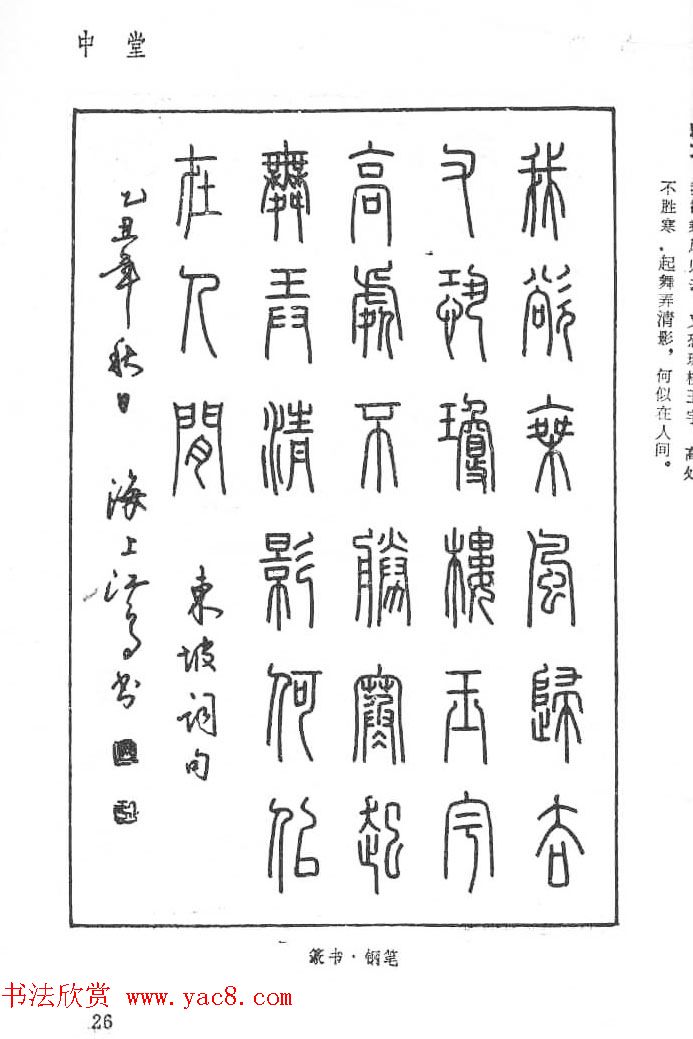 中堂
不胜寒．起舞弄清影，何似在人间。
我欲乘風歸去
又恐瓊樓玉宇
高處不勝寒起
舞弄清影何似
在人間 東坡詞句
乙丑年秋日 海上江書
篆书·钢笔
书法欣赏 www.yac8.com
26